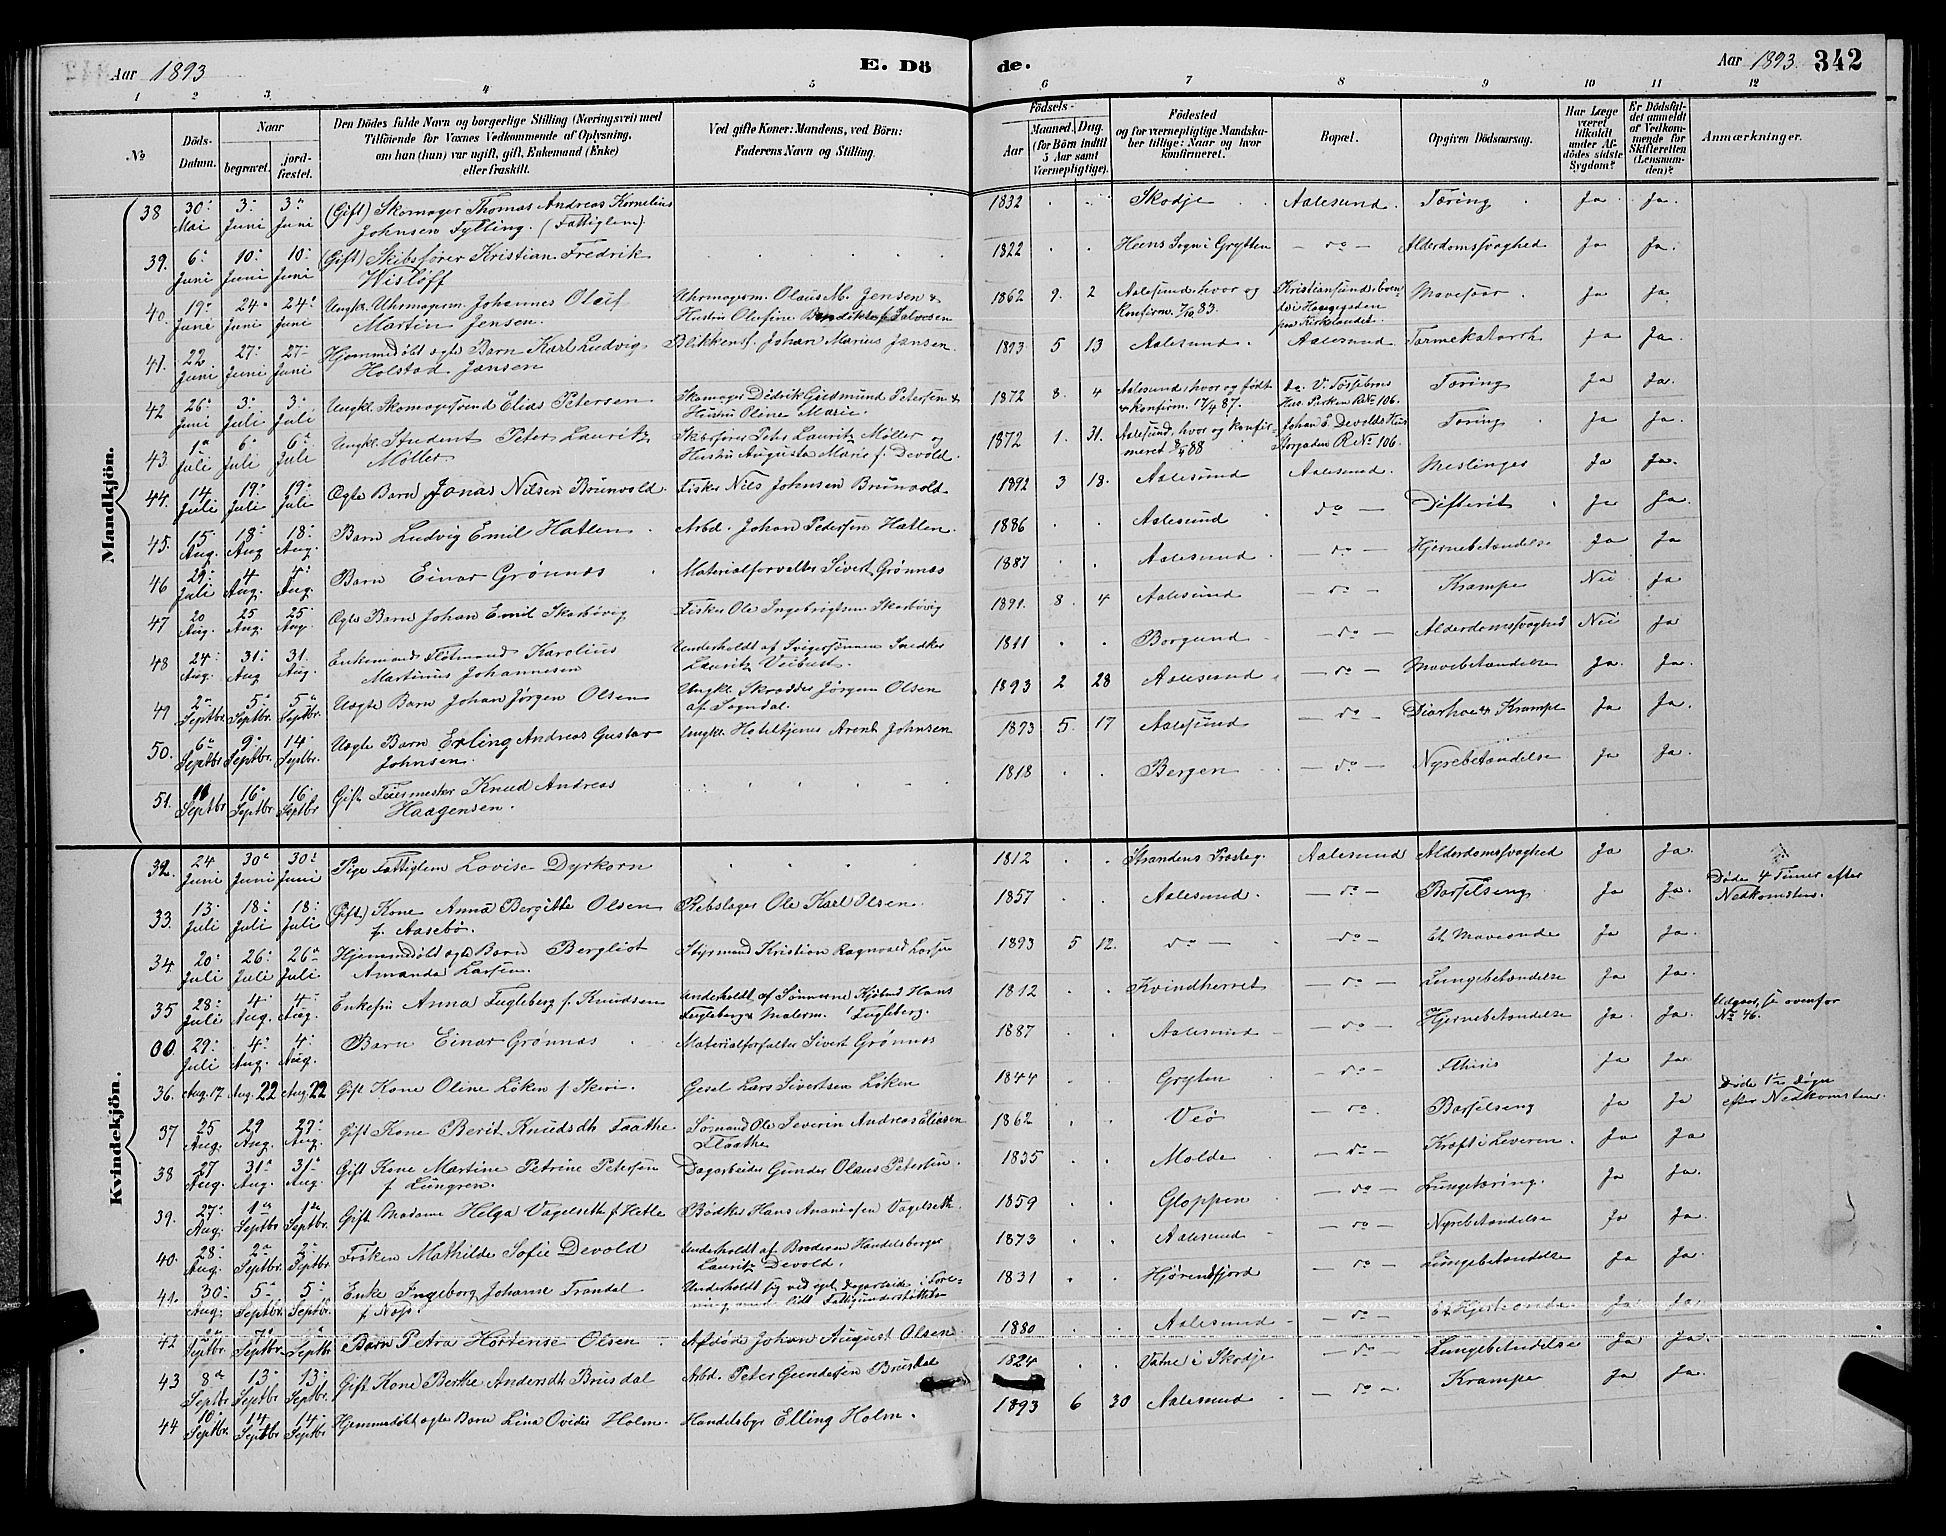 Aar 1893
E. Dö
de.
Aar 1893. 342
1 2 3. 4 5 6 7 8 9 10 11 12
No
Döds-Datum.
Naar
begravet.
jord-fæstet.
Den Dödes fulde Navn og borgerlige Stilling (Næringsvei) med
Tilföiende for Voxnes Vedkommende af Oplysning,
om han (hun) var ugift, gift, Enkemand (Enke)
eller fraskilt.
Ved gifte Koner: Mandens, ved Börn:
Faderens Navn og Stilling.
Födsels-
Aar
Maaned. Dag.
(for Börn indtil
5 Aar samt
Værnepligtige).
Födested
og for værnepligtige Mandska-
ber tillige: Naar og hvor
konfirmeret.
Bopæl.
Opgiven Dödsaarsag.
Har Læge
været
tilkaldt
under Af-
dödes sidste
Sygdom?
Er Dödsfal-
det anmeldt
af Vedkom-
mende for
Skifteretten
(Lensman-
den)?
Anmærkninger.
Mandkjön.
38 30. Mai 3. Juni 3. Juni (Gift) Skomager Thomas Andreas Kornelius 1832 Skodje Aalesund. Tæring Ja Ja.
Johnsen Fylling. (Fattiglem).
39. 6. Juni 10. Juni 10. Juni (Gift) Skibsfører Kristian Fredrik 1822 Heens Sogn i Grytten – do – Alderdomssvaghed Ja Ja.
Wisløff
40. 19. Juni 24. Juni 24. Juni Ungk. Uhrmagerm. Johannes Oluf Uhrmagerm. Olaus M. Jensen & 1862 9. 2 Aalesund, hvor og Mavesaar Ja Ja.
Martin Jensen. Hustru Olufine f. Salvesen Konfirm. 7/10 83.
41. 22 Juni 27. Juni 27. Juni Hjemmedøbt ægte Barn Karl Ludvig Blikkensl. Johan Marius Jansen. 1893 5 13 Aalesund. Aalesund Tarmekatarrh Ja Ja.
Holstad Jansen
42 26. Juni 3. Juli 3. Juli Ungkl. Skomagersvend Elias Petersen Skomager Didrik Gudmund Petersen & 1872 8. 4 Aalesund, hvor og født Tæring Ja Ja.
Hustru Oline Marie. & konfirm. 17/4 87.
43. 1. Juli 6. Juli 6. Juli Ungkl. Student Peter Lauritz Skibsfører Peter Lauritz Møller og 1872 1. 31. Aalesund, hvor og konfir- Johan E. Devolds Tæring Ja Ja.
Møller Hustru Augusta Marie f. Devold. meret 8/4 88 R No 106.
44. 14 Juli 19. Juli 19. Juli Ægte Barn Jonas Nilsen Brunvold. Fisker Nils Johnsen Brunvold 1892 3 18. Aalesund Aalesund. Meslinger Ja Ja.
45. 15. Aug. 18. Aug 18. Aug. Barn Ludvig Emil Hatlen Arbd. Johan Pedersen Hatlen. 1886 Aalesund – do – Difterit Ja Ja.
46 29. Juli 4 Aug. 4. Aug. Barn Einar Grönnæs Materialforvalter Sivert Grönnæs 1887 Aalesund – do – Hjernebetændelse Ja Ja
47 20 Aug. 25 Aug. 25 Aug. Ægte Barn Johan Emil Skarbövig Fisker Ole Ingebrigtsen Skarbövig 1891. 8. 4 Aalesund – do – Krampe Nei Ja
48 24. Aug. 31. Aug 31. Aug. Enkemand Flotmand Karolius Underholdt af Svigersønnen Snedker 1811 Borgund – do – Alderdomssvaghed Nei Ja
Martinus Johannesen Lauritz Veibust.
49 2. Septbr. 5. Septbr. 5. Septbr. Uægte Barn Johan Jörgen Olsen Ungkl. Skrædder Jörgen Olsen 1893 2 28 Aalesund – do – Mavebetændelse Ja. Ja.
af Sogndal.
50. 6. Septbr. 9. Septbr. 14. Septbr. Uægte Barn Erling Andreas Gustav Ungkl. Hoteltjener Arent Johnsen 1893 5. 17 Aalesund – do – Diarhoe & Krampe Ja Ja.
Johnsen.
51. Septbr 16. Septbr 16. Septbr Gift Feiermester Knud Andreas 1818 Bergen – do – Nyrebetændelse Ja Ja.
Haagensen.
Kvindekjön.
32. 24 Juni 30. Juni 30. Juni Pige Fattiglem Lovise Dyrkorn 1812 Strandens Præsteg. Aalesund Alderdomssvaghed Ja Ja.
33. 13. Juli 18. Juli 18. Juli (Gift) Kone Anna Bergitte Olsen Rebslager Ole Karl Olsen. 1857 Aalesund. – do – Barselseng Ja Ja. Døde 4 Timer efter
f. Aasebö. Nedkomsten.
34. 20. Juli 26. Juli 26. Juli Hjemmedöbt ægte Barn Bergliot Styrmand Kristian Ragnvald Larsen 1893 5 12. do – – do – Maveonde Ja Ja.
Amanda Larsen.
35 28. Juli 4. Aug. 4. Aug. Enkefru Anna Fugleberg f. Knudsen Underholdt af Sönnerne Kjøbmd Hans 1812 Kvindherret – do – Lungebetændelse Ja Ja.
Fugleberg & Malerm. Fugleberg.
00 29. Juli 4. Aug. 4. Aug. Barn Einar Grönnæs Materialforvalter Sivert Grönnæs 1887 Aalesund – do – Hjernebetændelse Ja. Ja. Udgaar, se ovenfor
No 46.
36. Aug. 17 Aug. 22 Aug. 22 Gift Kone Oline Löken f. Skeri. Gesel Lars Sivertsen Löken 1844 Gryten – do – Fthisis Ja Ja.
37 25 Aug. 29 Aug. 29. Aug. Gift Kone Berit Knudsdtr Flaathe Sömand Ole Severin Andreas Eliasen 1862 Veö – do. Barselseng Ja Ja Døde 1½ Døgn
Flaathe efter Nedkomsten.
38 27 Aug. 31. Aug. 31. Aug. Gift Kone Martine Petrine Petersen Dagarbeider Gunder Olaus Petersen. 1835 Molde – do – Kræft i Leveren. Ja Ja
f. Lüngren.
39. 27. Aug. 1. Septbr 1. Septbr. Gift Madame Helga Vagelseth f. Hetle Bødker Hans Ananiasen Vagelseth. 1859 Gloppen – do – Lungetæring. Ja Ja.
40. 28. Aug. 2. Septbr. 2. Septbr. Frøken Mathilde Sofie Devold Underholdt af Broderen Handelsborger 1873 Aalesund – do – Nyrebetændelse Ja Ja.
Lauritz Devold.
41. 30. Aug. 5. Septbr. 5. Septbr. Enke Ingeborg Johanne Trandal Underholdt sig ved eget Dagarbeide i Fore- 1831 Hjørendfjord – do – Lungebetændelse Ja Ja.
f. Næss. ning med lidt Fattigunderstøttelse
42 Septbr. 7. Septbr. Septbr Barn Petra Hortense Olsen Afdøde Johan August Olsen 1880 Aalesund – do – Hjerteonde Ja Ja.
43 8. Septbr 13. Septbr. 13. Septbr. Gift Kone Berthe Andersdtr Brusdal Arbd. Peter Gundersen Brusdal 1824 Vatne i Skodje – do – Lungebetændelse Ja Ja.
44 10. Septbr. 14. Septbr 14. Septbr Hjemmedöbt ægte Barn Lina Ovidie Holm. Handelsbgr Elling Holm. 1893 6 30 Aalesund – do – Krampe Ja Ja.